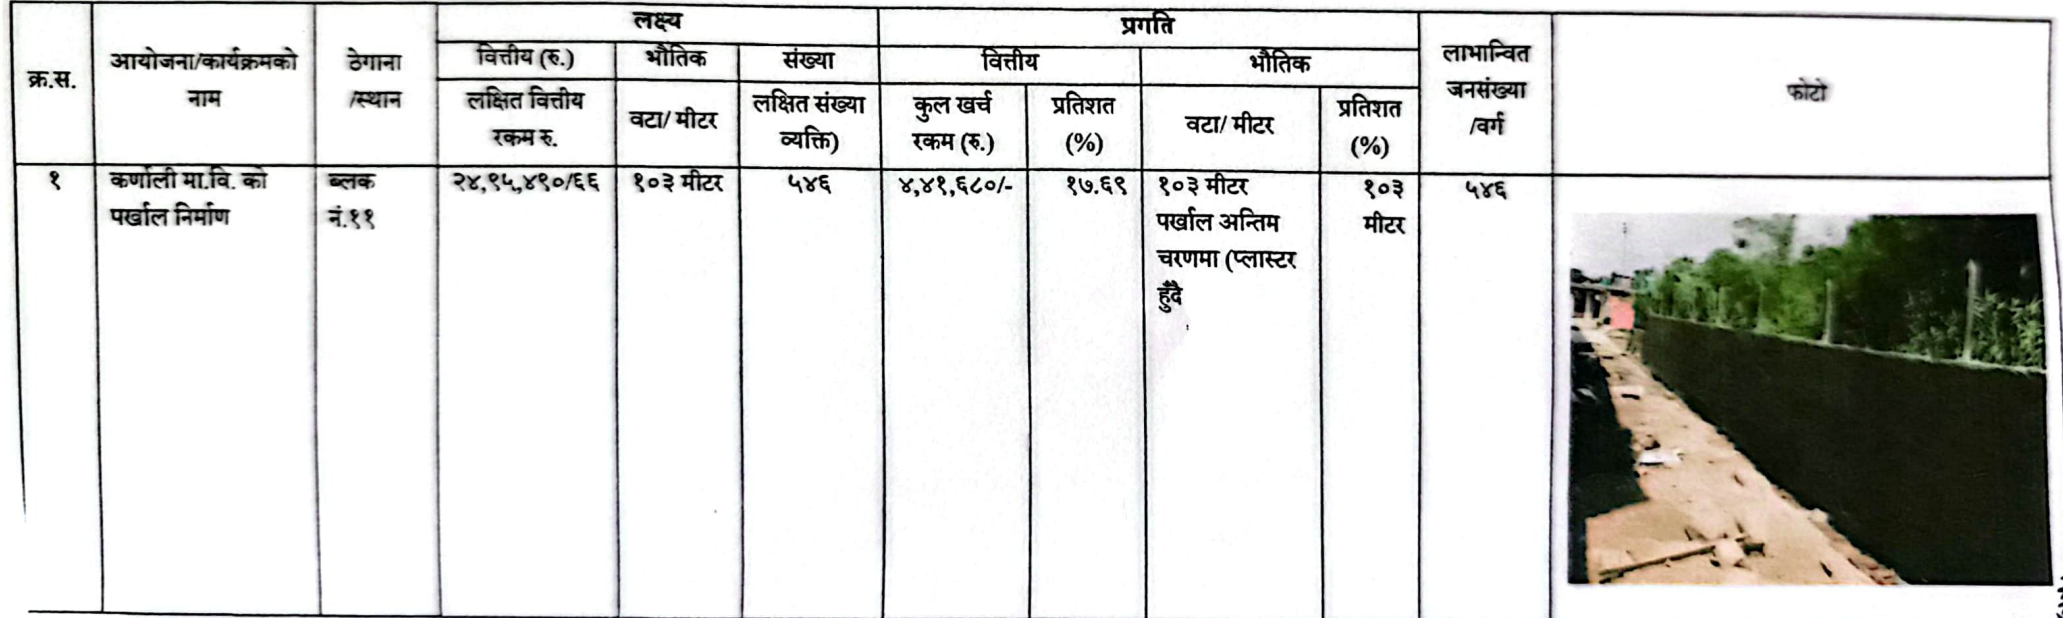 लक्ष्य
प्रगति
क्र.स.
आयोजना/कार्यक्रमको
नाम
ठेगाना
/स्थान
वित्तीय (रु.)
भौतिक
संख्या
वित्तीय
भौतिक
लाभान्वित
जनसंख्या
/वर्ग
फोटो
लक्षित वित्तीय
रकम रु.
वटा/ मीटर
लक्षित संख्या
व्यक्ति)
कुल खर्च
रकम (रु.)
प्रतिशत
(%)
वटा/ मीटर
प्रतिशत
(%)
१
कर्णाली मा.वि. को
पर्खाल निर्माण
ब्लक
नं.११
२४,९५,४९०/६६
१०३ मीटर
५४६
४,४१,६८०/-
१७.६९
१०३ मीटर
पर्खाल अन्तिम
चरणमा (प्लास्टर
हुँदै
१०३
मीटर
५४६